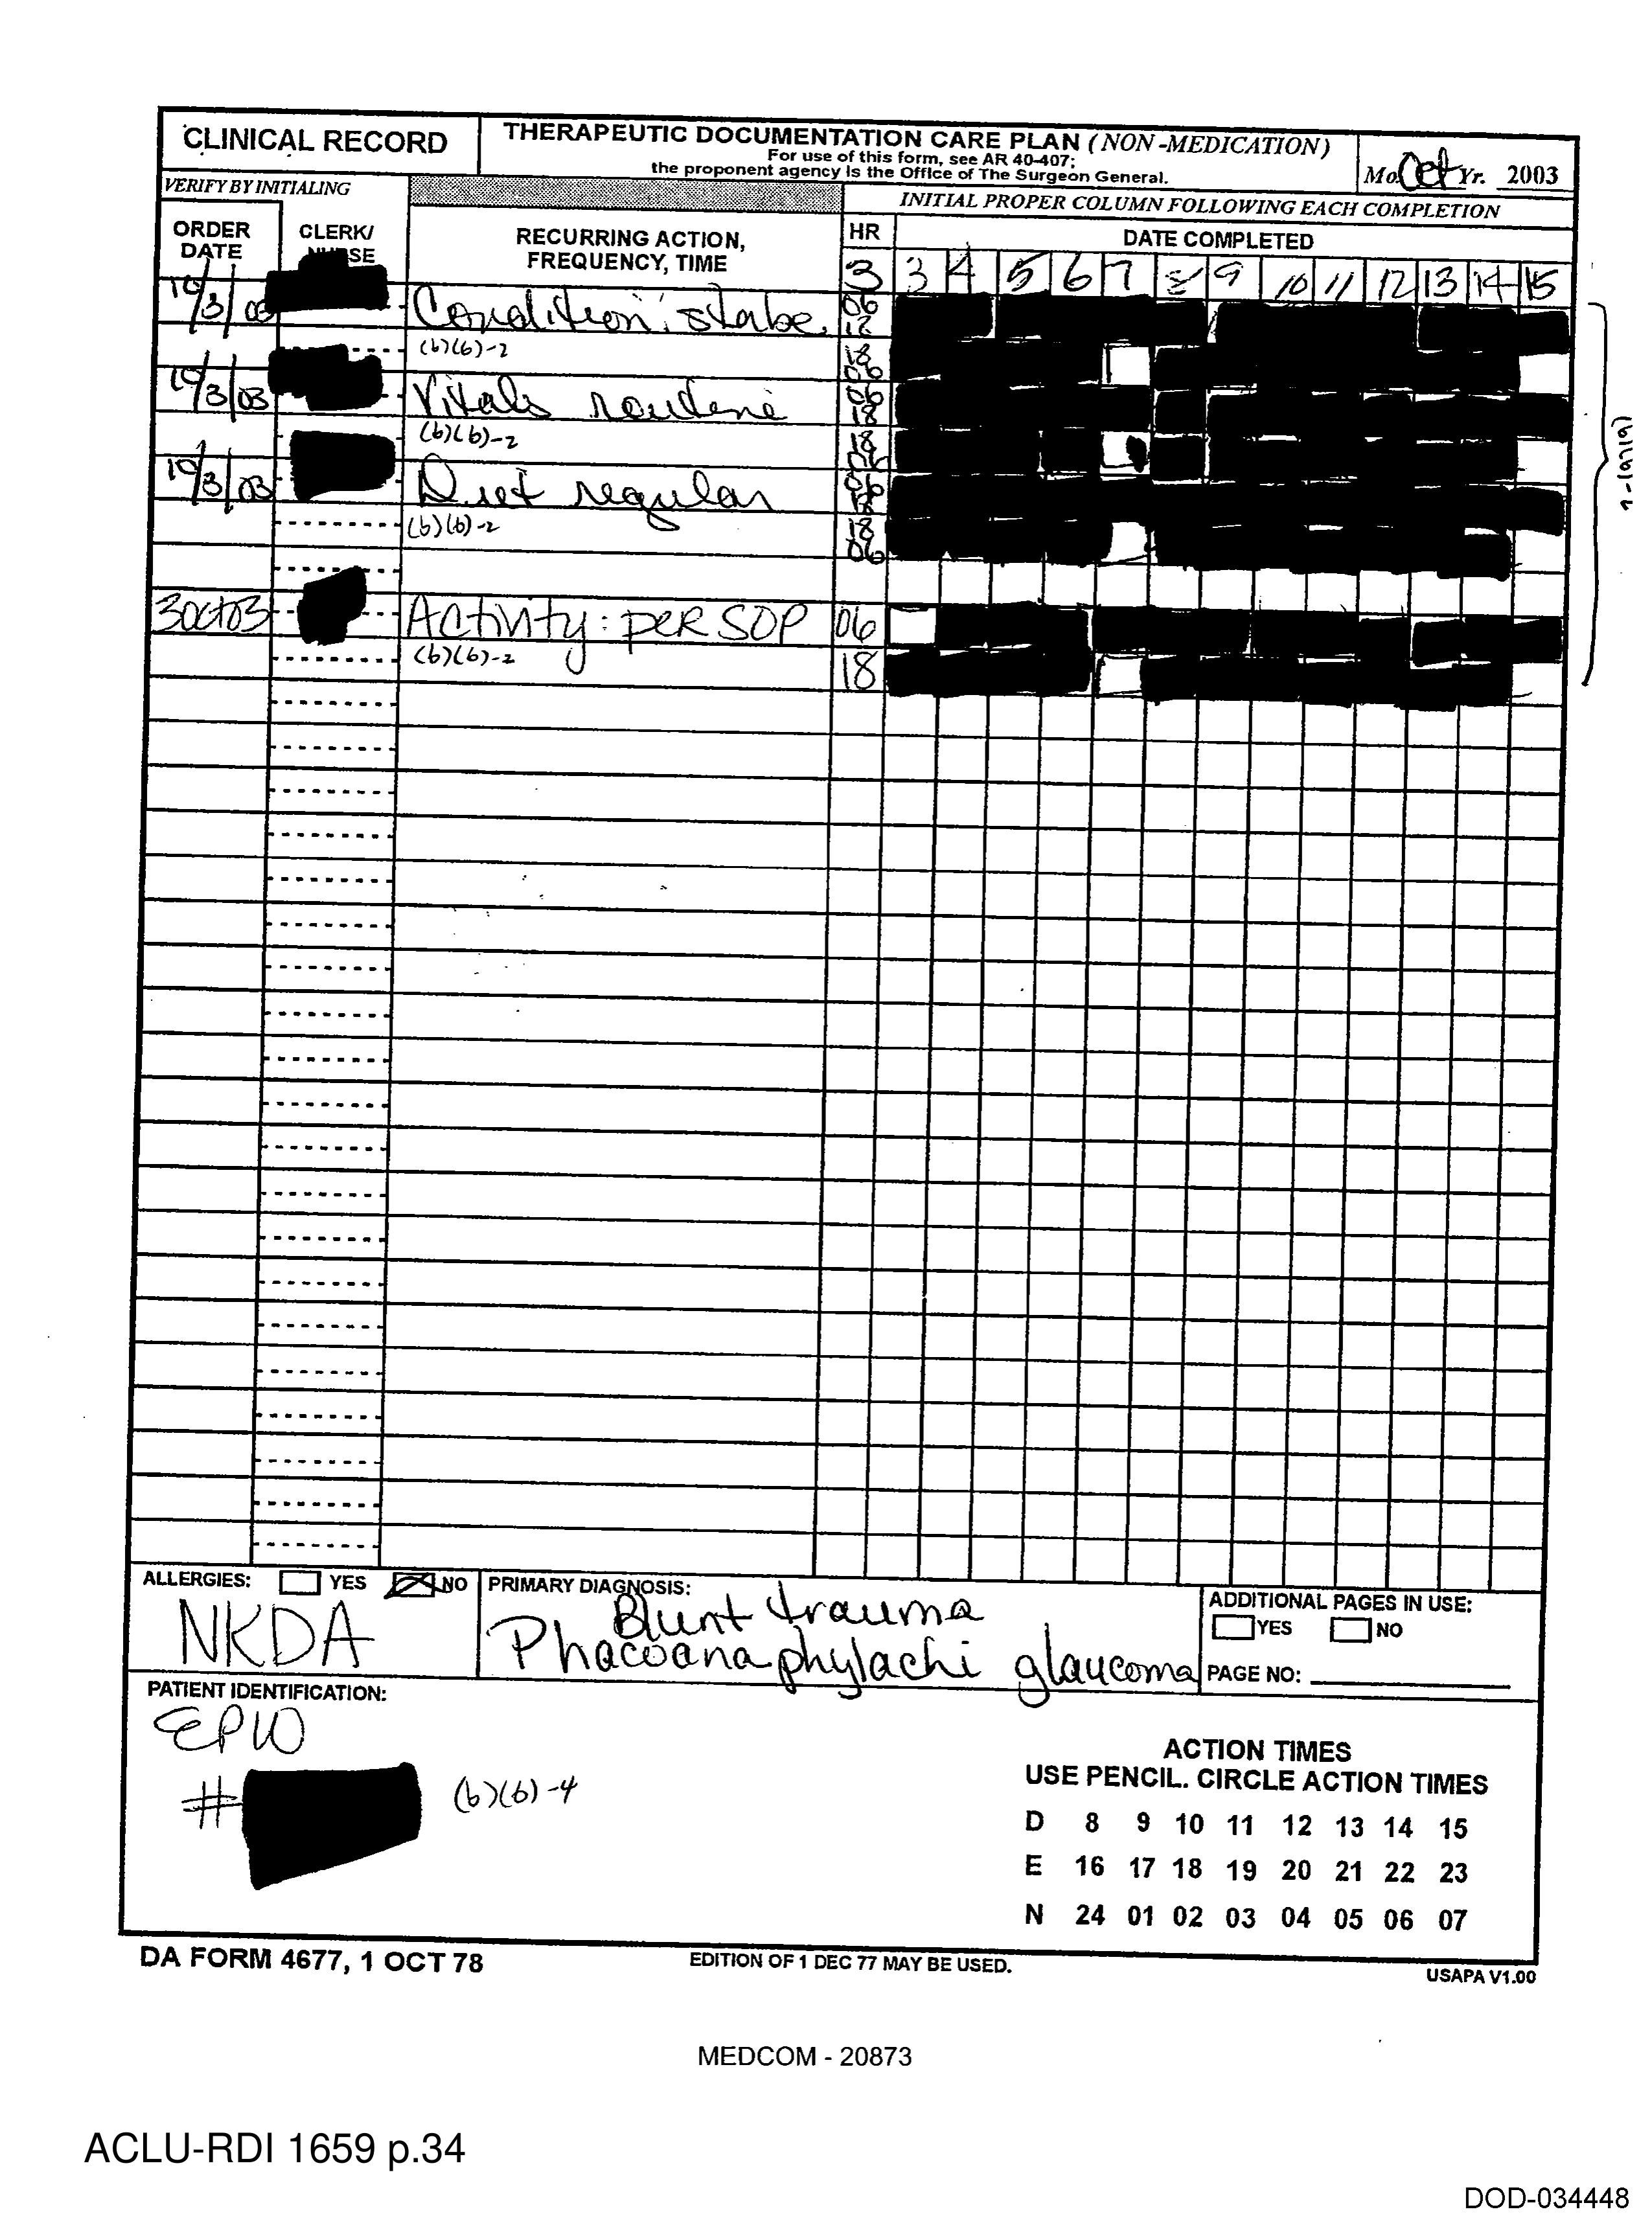 CLINICAL RECORD
THERAPEUTIC DOCUMENTATION CARE PLAN (NON-MEDICATION)
For use of this form, see AR 40-407;
the proponent agency is the Office of The Surgeon General.
Mo. Oct Yr. 2003
VERIFY BY INITIALING
INITIAL PROPER COLUMN FOLLOWING EACH COMPLETION
ORDER DATE
CLERK/
RECURRING ACTION, FREQUENCY, TIME
HR
DATE COMPLETED
3 3 4 5 6 7 8 9 10 11 12 13 14 15
10/3/03 Condition: stabe 06
18
(b)(6)-2 18
06
10/3/03 Vitals routine 06
18
(b)(6)-2 18
06
10/3/03 Diet regular 06
18
(b)(6)-2 18
06
3Oct03 Activity: per SOP 06
(b)(6)-2 18
(b)(6)-2
ALLERGIES: YES NO
NKDA
PRIMARY DIAGNOSIS:
Blunt trauma
Phacoanaphylachi glaucoma
ADDITIONAL PAGES IN USE:
YES NO
PAGE NO:
PATIENT IDENTIFICATION:
EPW
# (b)(6)-4
ACTION TIMES
USE PENCIL. CIRCLE ACTION TIMES
D 8 9 10 11 12 13 14 15
E 16 17 18 19 20 21 22 23
N 24 01 02 03 04 05 06 07
DA FORM 4677, 1 OCT 78
EDITION OF 1 DEC 77 MAY BE USED.
USAPA V1.00
MEDCOM - 20873
ACLU-RDI 1659 p.34
DOD-034448